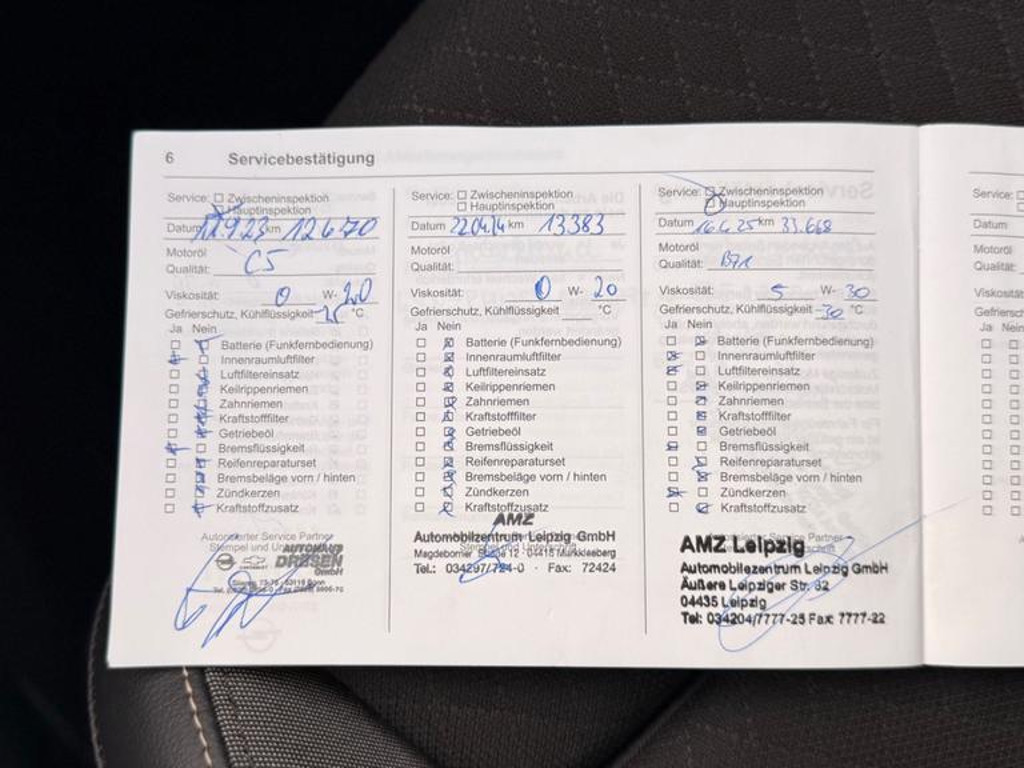 6 Servicebestätigung
Service: Zwischeninspektion
Hauptinspektion
Datum 12.9.23 km 12670
Motoröl
Qualität: C5
Viskosität: 0 W- 20
Gefrierschutz, Kühlflüssigkeit °C
Ja Nein
Batterie (Funkfernbedienung)
Innenraumluftfilter
Luftfiltereinsatz
Keilrippenriemen
Zahnriemen
Kraftstofffilter
Getriebeöl
Bremsflüssigkeit
Reifenreparaturset
Bremsbeläge vorn / hinten
Zündkerzen
Kraftstoffzusatz
Autorisierter Service Partner
Stempel und
AUTOHAUS
DRESEN
GmbH
Service: Zwischeninspektion
Hauptinspektion
Datum 22.04.14 km 13383
Motoröl
Qualität:
Viskosität: 0 W- 20
Gefrierschutz, Kühlflüssigkeit °C
Ja Nein
Batterie (Funkfernbedienung)
Innenraumluftfilter
Luftfiltereinsatz
Keilrippenriemen
Zahnriemen
Kraftstofffilter
Getriebeöl
Bremsflüssigkeit
Reifenreparaturset
Bremsbeläge vorn / hinten
Zündkerzen
Kraftstoffzusatz
AMZ
Automobilzentrum Leipzig GmbH
Magdeborner Straße 12 · 04416 Markkleeberg
Tel.: 034297/724-0 · Fax: 72424
Service: Zwischeninspektion
Hauptinspektion
Datum 16.6.25 km 33.668
Motoröl
Qualität: B71
Viskosität: 5 W- 30
Gefrierschutz, Kühlflüssigkeit -30 °C
Ja Nein
Batterie (Funkfernbedienung)
Innenraumluftfilter
Luftfiltereinsatz
Keilrippenriemen
Zahnriemen
Kraftstofffilter
Getriebeöl
Bremsflüssigkeit
Reifenreparaturset
Bremsbeläge vorn / hinten
Zündkerzen
Kraftstoffzusatz
Autorisierter Service Partner
AMZ Leipzig
Automobilezentrum Leipzig GmbH
Äußere Leipziger Str. 32
04435 Leipzig
Tel: 034204/7777-25 Fax: 7777-22
Service:
Datum
Motoröl
Qualität:
Viskosität
Gefriersch
Ja Nein